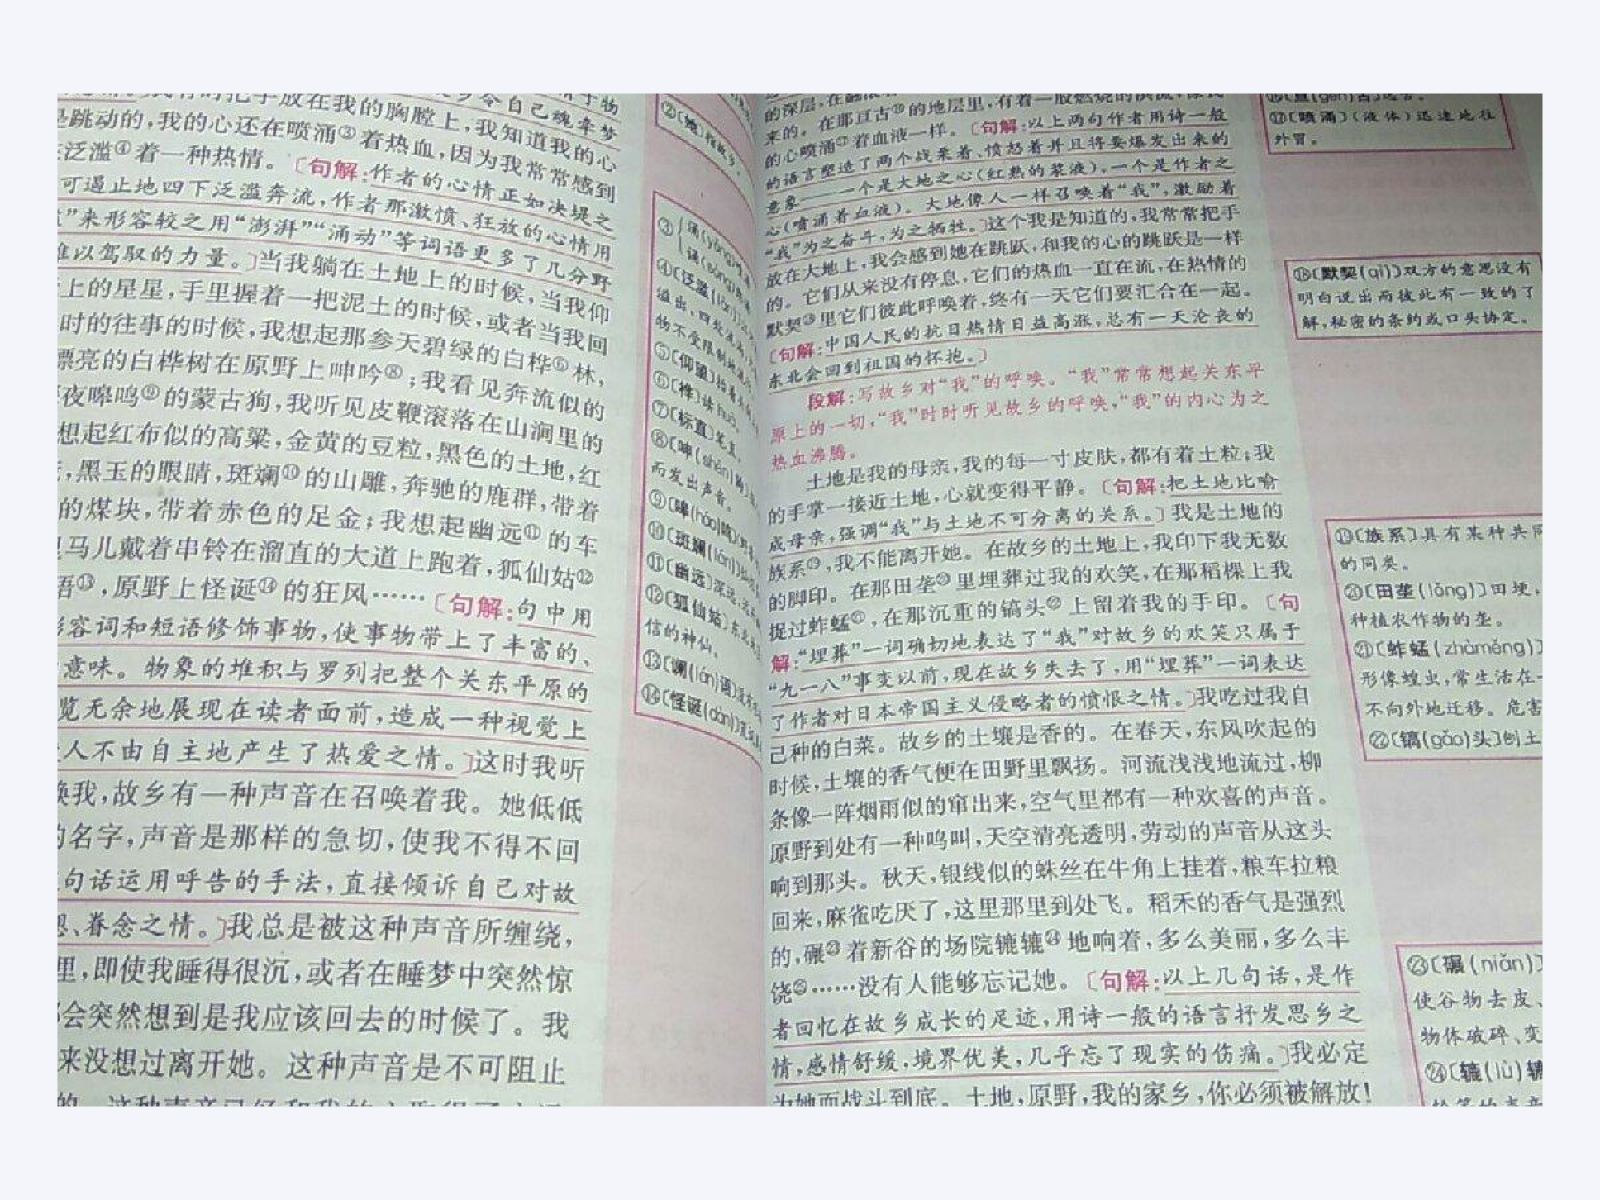 我的胸膛上,我知道我的心
是跳动的,我的心还在喷涌③着热血,因为我常常感到
泛滥④着一种热情。〔句解:作者的心情正如决堤之
可遏止地四下泛滥奔流,作者那激愤、狂放的心情用
”来形容较之用“澎湃”“涌动”等词语更多了几分野
难以驾驭的力量。〕当我躺在土地上的时候,当我仰
上的星星,手里握着一把泥土的时候,或者当我回
时的往事的时候,我想起那参天碧绿的白桦⑥林,
漂亮的白桦树在原野上呻吟⑧;我看见奔流似的
夜嗥鸣⑨的蒙古狗,我听见皮鞭滚落在山涧里的
想起红布似的高粱,金黄的豆粒,黑色的土地,红
,黑玉的眼睛,斑斓⑩的山雕,奔驰的鹿群,带着
的煤块,带着赤色的足金;我想起幽远⑪的车
马儿戴着串铃在溜直的大道上跑着,狐仙姑⑫
语⑬,原野上怪诞⑭的狂风……〔句解:句中用
形容词和短语修饰事物,使事物带上了丰富的、
意味。物象的堆积与罗列把整个关东平原的
览无余地展现在读者面前,造成一种视觉上
人不由自主地产生了热爱之情。〕这时我听
唤我,故乡有一种声音在召唤着我。她低低
的名字,声音是那样的急切,使我不得不回
句话运用呼告的手法,直接倾诉自己对故
、眷念之情。〕我总是被这种声音所缠绕,
里,即使我睡得很沉,或者在睡梦中突然惊
都会突然想到是我应该回去的时候了。我
来没想过离开她。这种声音是不可阻止
④〔泛滥
⑤〔仰望〕
⑦〔标直〕笔直
而发出声音。
⑨〔嗥(háo)鸣〕
⑩〔斑斓
⑪〔幽远〕深远
⑫〔狐仙姑〕
信的神仙。
⑬〔谰(lán)语〕
⑭〔怪诞(dàn)〕
来的。在那亘古⑯的地层里,有着一股燃烧的洪流,像我
的心喷涌⑰着血液一样。〔句解:以上两句作者用诗一般
的语言塑造了两个战栗着、愤怒着并且将要爆发出来的
意象——一个是大地之心(红热的浆液),一个是作者之
心(喷涌着血液)。大地像人一样召唤着“我”,激励着
“我”为之奋斗,为之牺牲。〕这个我是知道的,我常常把手
放在大地上,我会感到她在跳跃,和我的心的跳跃是一样
的。它们从来没有停息,它们的热血一直在流,在热情的
默契⑱里它们彼此呼唤着,终有一天它们要汇合在一起。
〔句解:中国人民的抗日热情日益高涨,总有一天沦丧的
东北会回到祖国的怀抱。〕
段解:写故乡对“我”的呼唤。“我”常常想起关东平
原上的一切,“我”时时听见故乡的呼唤,“我”的内心为之
热血沸腾。
土地是我的母亲,我的每一寸皮肤,都有着土粒;我
的手掌一接近土地,心就变得平静。〔句解:把土地比喻
成母亲,强调“我”与土地不可分离的关系。〕我是土地的
族系⑲,我不能离开她。在故乡的土地上,我印下我无数
的脚印。在那田垄⑳里埋葬过我的欢笑,在那稻棵上我
捉过蚱蜢㉑,在那沉重的镐头㉒上留着我的手印。〔句
解:“埋葬”一词确切地表达了“我”对故乡的欢笑只属于
“九一八”事变以前,现在故乡失去了,用“埋葬”一词表达
了作者对日本帝国主义侵略者的愤恨之情。〕我吃过我自
己种的白菜。故乡的土壤是香的。在春天,东风吹起的
时候,土壤的香气便在田野里飘扬。河流浅浅地流过,柳
条像一阵烟雨似的窜出来,空气里都有一种欢喜的声音。
原野到处有一种鸣叫,天空清亮透明,劳动的声音从这头
响到那头。秋天,银线似的蛛丝在牛角上挂着,粮车拉粮
回来,麻雀吃厌了,这里那里到处飞。稻禾的香气是强烈
的,碾㉓着新谷的场院辘辘㉔地响着,多么美丽,多么丰
饶㉕……没有人能够忘记她。〔句解:以上几句话,是作
者回忆在故乡成长的足迹,用诗一般的语言抒发思乡之
情,感情舒缓,境界优美,几乎忘了现实的伤痛。〕我必定
为她而战斗到底。土地,原野,我的家乡,你必须被解放!
⑰〔喷涌〕(液体)迅速地往
外冒。
⑱〔默契(qì)〕双方的意思没有
明白说出而彼此有一致的了
解,秘密的条约或口头协定。
⑲〔族系〕具有某种共同
的同类。
⑳〔田垄(lǒng)〕田埂,
种植农作物的垄。
㉑〔蚱蜢(zhàměng)〕
形像蝗虫,常生活在一
不向外地迁移。危害
㉒〔镐(gǎo)头〕刨土
㉓〔碾(niǎn)〕
使谷物去皮、
物体破碎、变
㉔〔辘(lù)辘